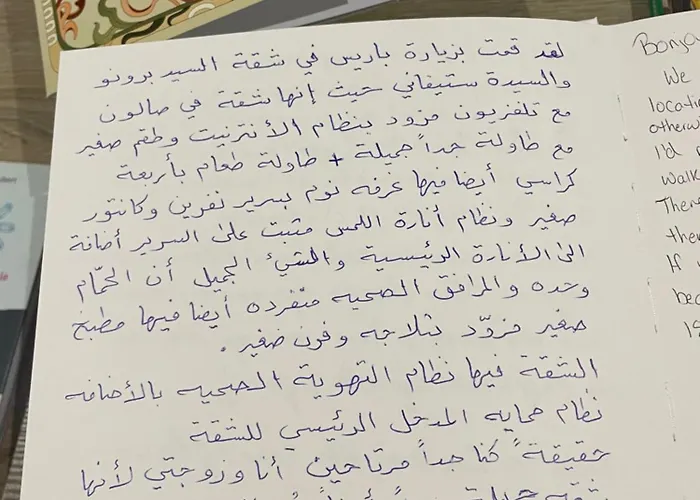 لقد قمت بزيارة باريس في شقة السيد برونو
والسيدة ستيفاني حيث إنها شقة في صالون
مع تلفزيون مزود بنظام الأنترنيت وطقم صغير
مع طاولة جداً جميلة + طاولة طعام بأربعة
كراسي أيضا فيها غرفه نوم بسرير نفرين وكانتور
صغير ونظام أنارة اللمس مثبت على السرير أضافة
الى الأنارة الرئيسية والشيء الجميل أن الحمّام
وحده والمرافق الصحيه منفرده أيضا فيها مطبخ
صغير مزوّد بثلاجه وفرن صغير .
الشقة فيها نظام التهوية الصحيه بالأضافه
نظام حمايه المدخل الرئيسي للشقة
حقيقةً كنا جداً مرتاحين أنا وزوجتي لأنها
Bonjou
We
locatio
otherwi
I'd
walk
There
the
If
bec